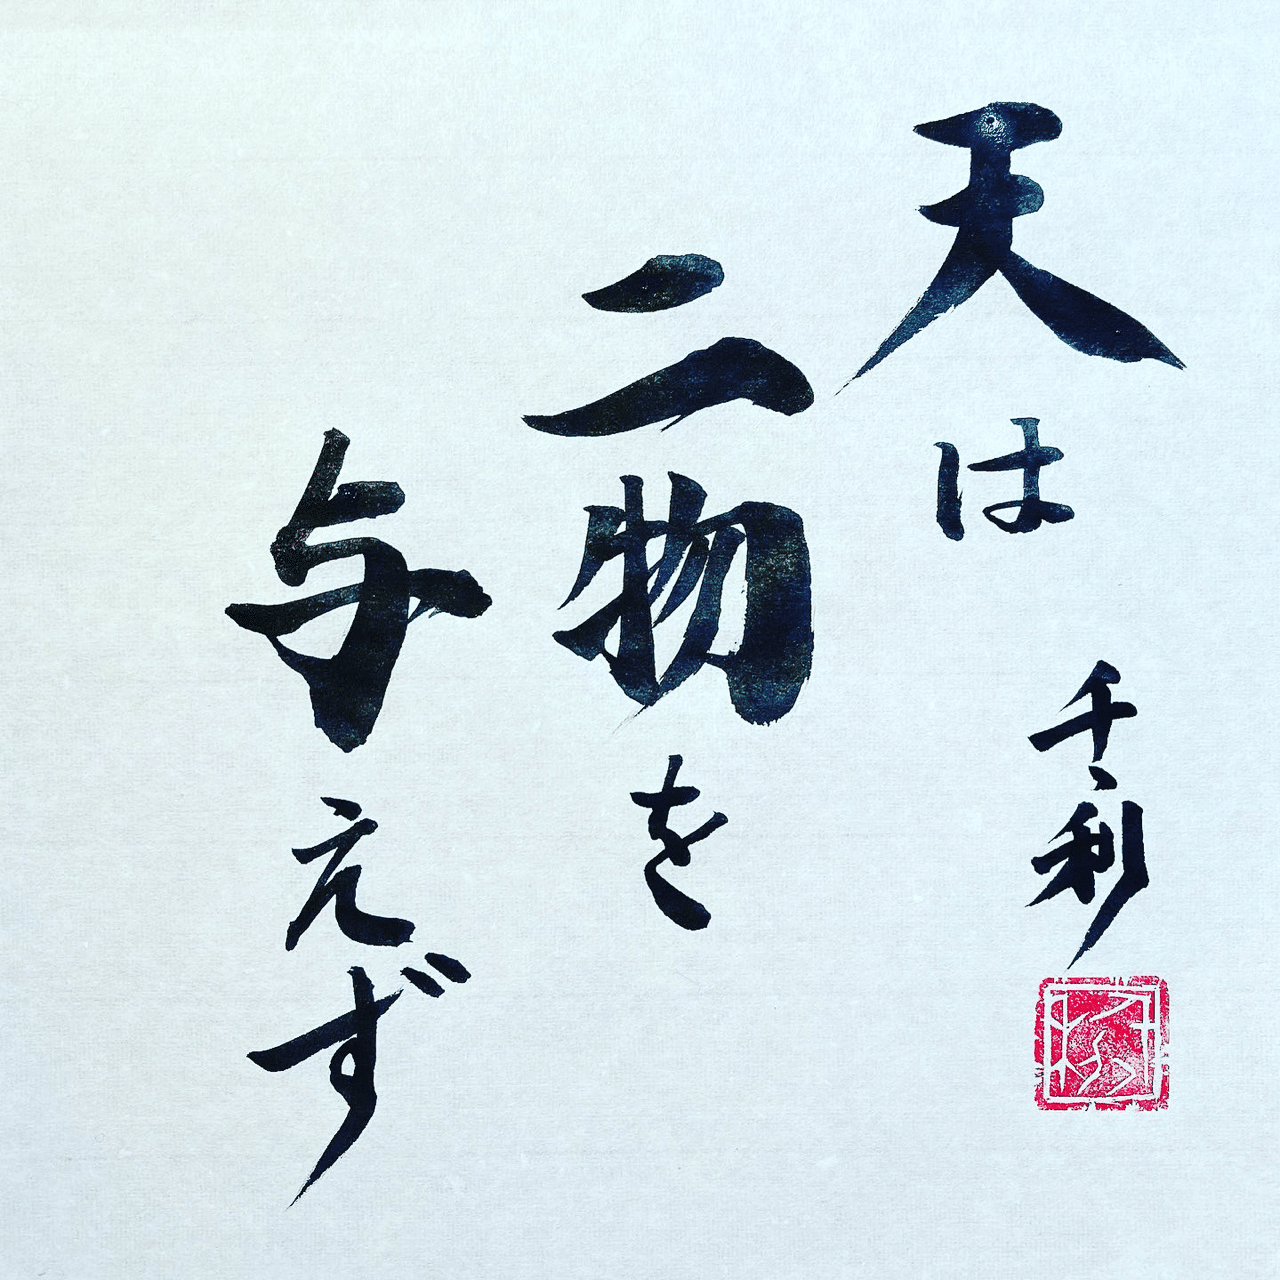 天は
二物を
与えず
千利